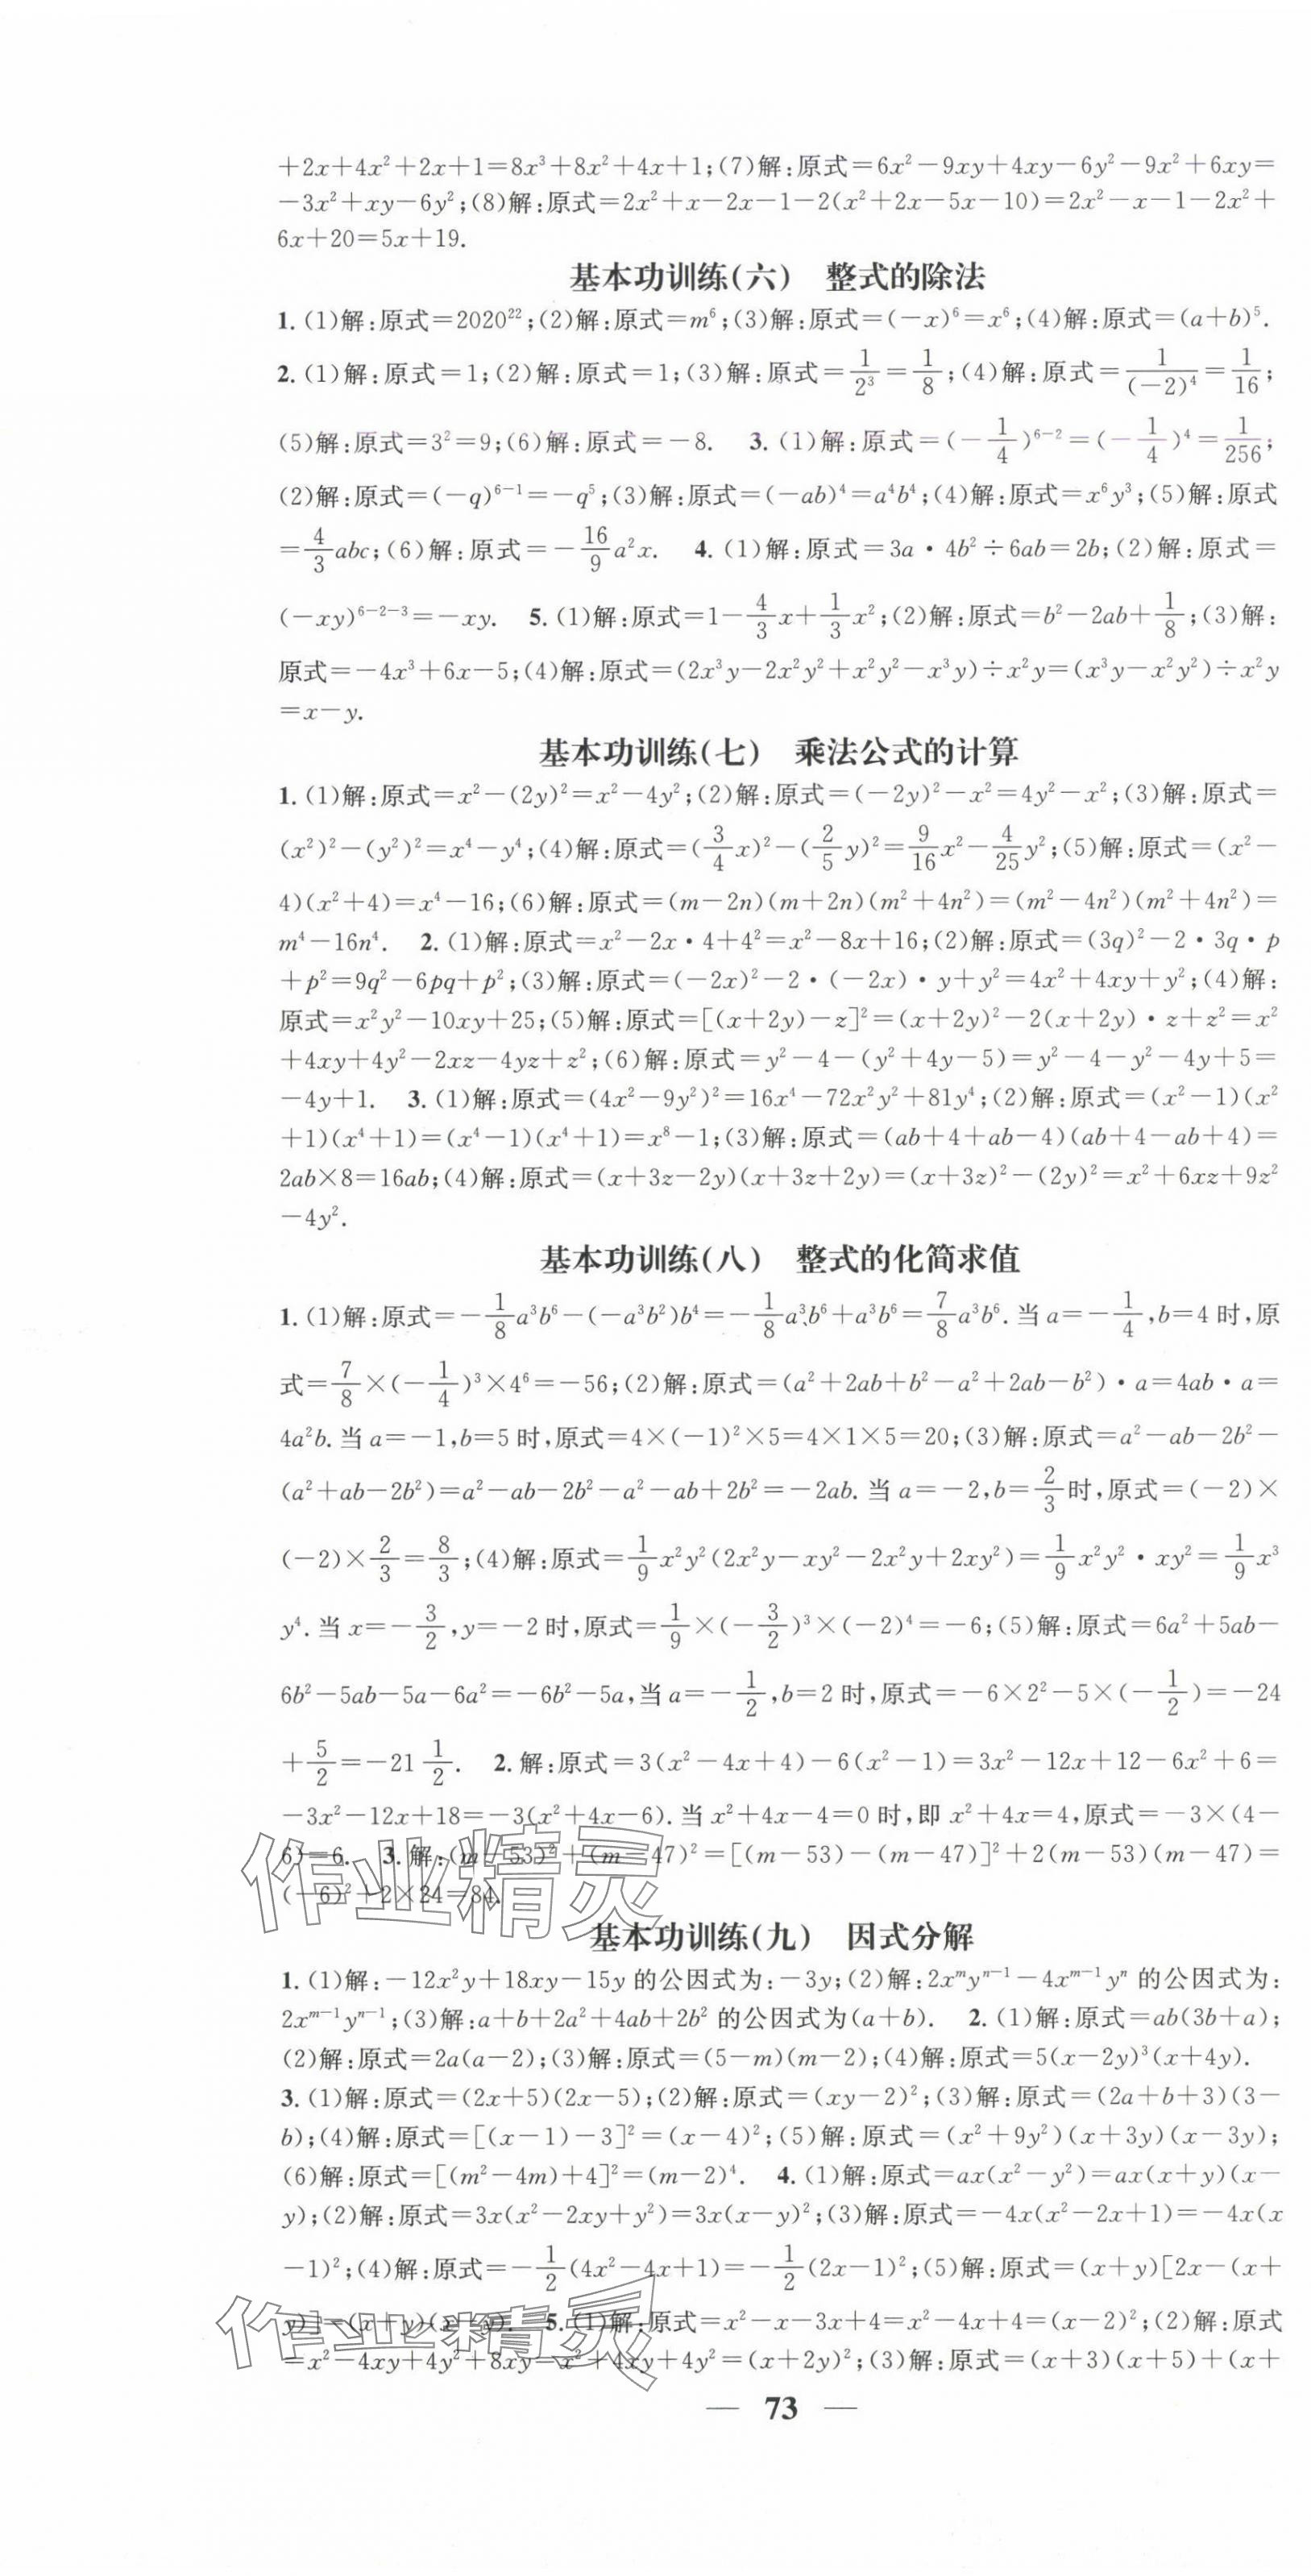 +2x+4x²+2x+1=8x³+8x²+4x+1;(7)解:原式=6x²-9xy+4xy-6y²-9x²+6xy=
-3x²+xy-6y²;(8)解:原式=2x²+x-2x-1-2(x²+2x-5x-10)=2x²-x-1-2x²+
6x+20=5x+19.
基本功训练(六) 整式的除法
1. (1)解:原式=2020²²;(2)解:原式=m⁶;(3)解:原式=(-x)⁶=x⁶;(4)解:原式=(a+b)⁵.
2. (1)解:原式=1;(2)解:原式=1;(3)解:原式=1/2³=1/8;(4)解:原式=1/(-2)⁴=1/16;
(5)解:原式=3²=9;(6)解:原式=-8. 3. (1)解:原式=(-1/4)⁶⁻²=(-1/4)⁴=1/256;
(2)解:原式=(-q)⁶⁻¹=-q⁵;(3)解:原式=(-ab)⁴=a⁴b⁴;(4)解:原式=x⁶y³;(5)解:原式
=4/3abc;(6)解:原式=-16/9a²x. 4. (1)解:原式=3a·4b²÷6ab=2b;(2)解:原式=
(-xy)⁶⁻²⁻³=-xy. 5. (1)解:原式=1-4/3x+1/3x²;(2)解:原式=b²-2ab+1/8;(3)解:
原式=-4x³+6x-5;(4)解:原式=(2x³y-2x²y²+x²y²-x³y)÷x²y=(x³y-x²y²)÷x²y
=x-y.
基本功训练(七) 乘法公式的计算
1. (1)解:原式=x²-(2y)²=x²-4y²;(2)解:原式=(-2y)²-x²=4y²-x²;(3)解:原式=
(x²)²-(y²)²=x⁴-y⁴;(4)解:原式=(3/4x)²-(2/5y)²=9/16x²-4/25y²;(5)解:原式=(x²-
4)(x²+4)=x⁴-16;(6)解:原式=(m-2n)(m+2n)(m²+4n²)=(m²-4n²)(m²+4n²)=
m⁴-16n⁴. 2. (1)解:原式=x²-2x·4+4²=x²-8x+16;(2)解:原式=(3q)²-2·3q·p
+p²=9q²-6pq+p²;(3)解:原式=(-2x)²-2·(-2x)·y+y²=4x²+4xy+y²;(4)解:
原式=x²y²-10xy+25;(5)解:原式=[(x+2y)-z]²=(x+2y)²-2(x+2y)·z+z²=x²
+4xy+4y²-2xz-4yz+z²;(6)解:原式=y²-4-(y²+4y-5)=y²-4-y²-4y+5=
-4y+1. 3. (1)解:原式=(4x²-9y²)²=16x⁴-72x²y²+81y⁴;(2)解:原式=(x²-1)(x²
+1)(x⁴+1)=(x⁴-1)(x⁴+1)=x⁸-1;(3)解:原式=(ab+4+ab-4)(ab+4-ab+4)=
2ab×8=16ab;(4)解:原式=(x+3z-2y)(x+3z+2y)=(x+3z)²-(2y)²=x²+6xz+9z²
-4y².
基本功训练(八) 整式的化简求值
1. (1)解:原式=-1/8a³b⁶-(-a³b²)b⁴=-1/8a³b⁶+a³b⁶=7/8a³b⁶.当a=-1/4,b=4时,原
式=7/8×(-1/4)³×4⁶=-56;(2)解:原式=(a²+2ab+b²-a²+2ab-b²)·a=4ab·a=
4a²b.当a=-1,b=5时,原式=4×(-1)²×5=4×1×5=20;(3)解:原式=a²-ab-2b²-
(a²+ab-2b²)=a²-ab-2b²-a²-ab+2b²=-2ab.当a=-2,b=2/3时,原式=(-2)×
(-2)×2/3=8/3;(4)解:原式=1/9x²y²(2x²y-xy²-2x²y+2xy²)=1/9x²y²·xy²=1/9x³
y⁴.当x=-3/2,y=-2时,原式=1/9×(-3/2)³×(-2)⁴=-6;(5)解:原式=6a²+5ab-
6b²-5ab-5a-6a²=-6b²-5a,当a=-1/2,b=2时,原式=-6×2²-5×(-1/2)=-24
+5/2=-21 1/2. 2. 解:原式=3(x²-4x+4)-6(x²-1)=3x²-12x+12-6x²+6=
-3x²-12x+18=-3(x²+4x-6).当x²+4x-4=0时,即x²+4x=4,原式=-3×(4-
6)=6. 3. 解:(m-53)²+(m-47)²=[(m-53)-(m-47)]²+2(m-53)(m-47)=
(-6)²+2×24=84.
作业精灵
基本功训练(九) 因式分解
1. (1)解:-12x²y+18xy-15y的公因式为:-3y;(2)解:2xᵐyⁿ⁻¹-4xᵐ⁻¹yⁿ的公因式为:
2xᵐ⁻¹yⁿ⁻¹;(3)解:a+b+2a²+4ab+2b²的公因式为(a+b). 2. (1)解:原式=ab(3b+a);
(2)解:原式=2a(a-2);(3)解:原式=(5-m)(m-2);(4)解:原式=5(x-2y)³(x+4y).
3. (1)解:原式=(2x+5)(2x-5);(2)解:原式=(xy-2)²;(3)解:原式=(2a+b+3)(3-
b);(4)解:原式=[(x-1)-3]²=(x-4)²;(5)解:原式=(x²+9y²)(x+3y)(x-3y);
(6)解:原式=[(m²-4m)+4]²=(m-2)⁴. 4. (1)解:原式=ax(x²-y²)=ax(x+y)(x-
y);(2)解:原式=3x(x²-2xy+y²)=3x(x-y)²;(3)解:原式=-4x(x²-2x+1)=-4x(x
-1)²;(4)解:原式=-1/2(4x²-4x+1)=-1/2(2x-1)²;(5)解:原式=(x+y)[2x-(x+
y)]=(x+y)(x-y). 5. (1)解:原式=x²-x-3x+4=x²-4x+4=(x-2)²;(2)解:原式
=x²-4xy+4y²+8xy=x²+4xy+4y²=(x+2y)²;(3)解:原式=(x+3)(x+5)+(x+
作业精灵
— 73 —